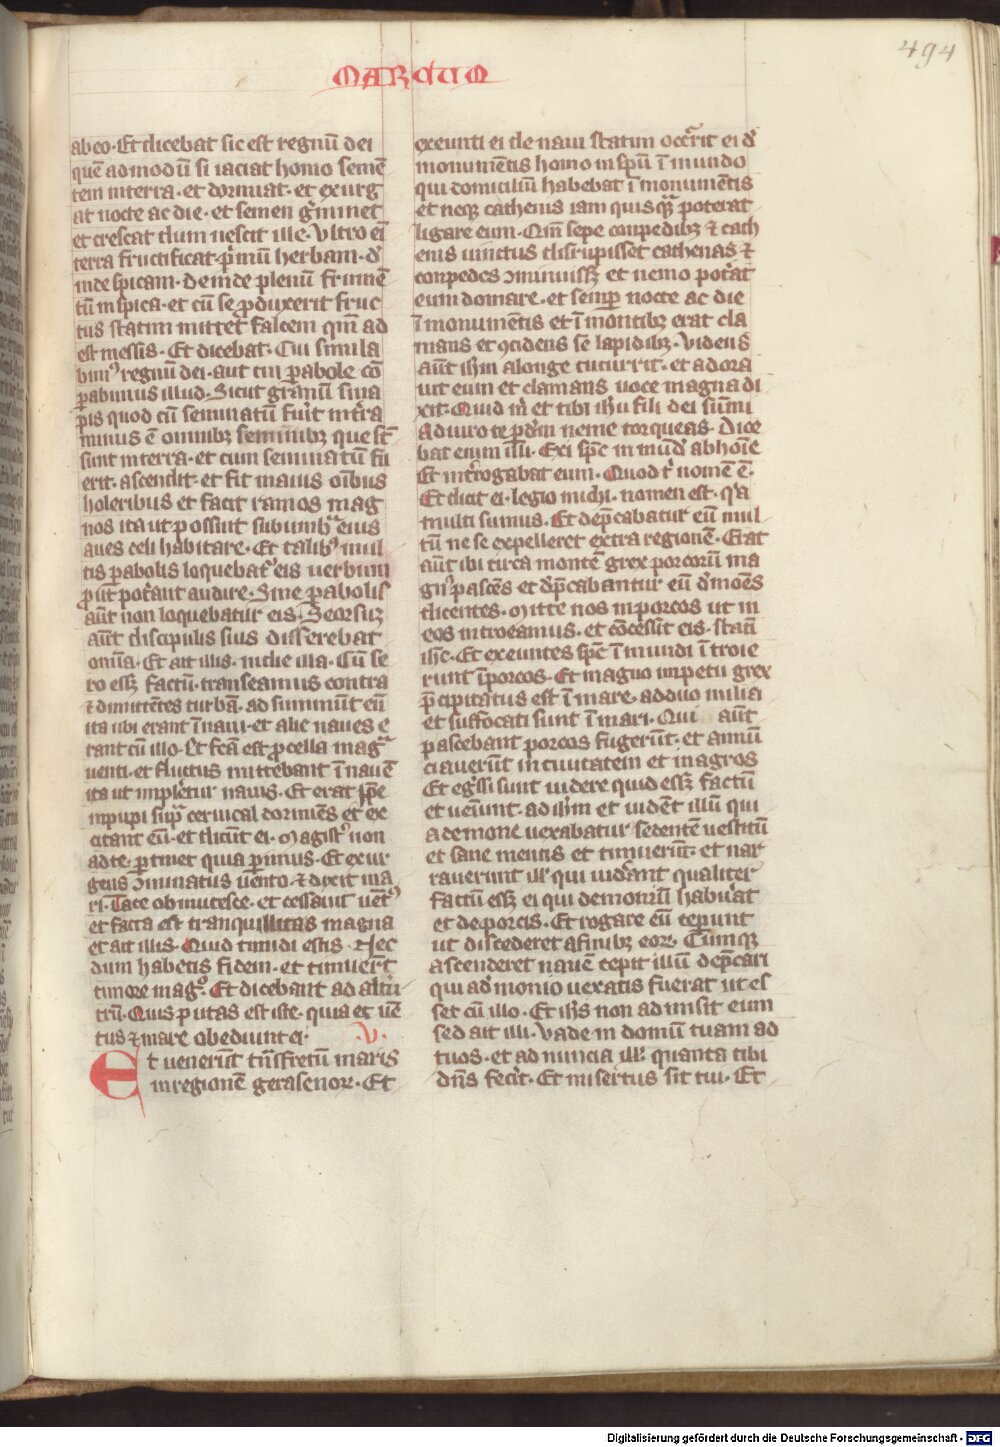 MARCUM
494
ab eo· Et dicebat sic est regnū dei
quē ad modū si iaciat homo semē
tem in terra· et dormiat· et exurg
at nocte ac die· et semen g̾minet
et crescat dum nescit ille· Ultro ei͞
terra fructificat p̾mū herbam· d̾
inde spicam· Deinde plenū frumē
tū in spica· et cū se ꝓduxerit fruc
tus statim mittet falcem qm̄ ad
est messis· Et dicebat· Cui simila
bim⁹ regnū dei· aut cui ꝑabole cō
ꝑabimus illud· Sicut granū sina
pis quod cū seminatū fuit in t̾ra
minus ē omnibꝫ seminibꝫ que st̄
sunt in terra· et cum seminatū fu
erit· ascendit· et fit maius oībus
holeribus et facit ramos mag
nos ita ut possint sub umb̾ eius
aues celi habitare· Et talib⁹ mul
tis ꝑabolis loquebat̾ eis uerbum
ꝓut pot̾ant audire· Sine ꝑabolis
aūt non loquebatur eis· Seorsuꝫ
aūt discipulis suis disserebat
omīa· Et ait illis· in die illa· Cū se
ro essꝫ factū· transeamus contra
⁊ dimittētes turbā· ad sumūt eū
ita ubi erant ī naui· et alie naues e
rant cū illo· Et fc̄a est ꝓcella mag̾
uenti· et fluctus mittebant ī nauē
ita ut impler̄tur nauis· Et erat ip̄e
in pupi sup̾ ceruical dormiēs et ex
citant eū· et dicūt ei· Magist̾ non
ad te ꝑtinet quia ꝑimus· Et exur
gens ↄminatus uēnto ⁊ dixit ma
ri· Tace obmutesce· et cessauit uēt⁹
et facta est tranquillitas magna
et ait illis· Quid timidi estis· Nec
dum habetis fidem· et timuer̄t
timore mag̊· Et dicebant ad alt̾u
trū· Quis putas est iste· quia et uē
tus ⁊ mare obediunt ei· V·
Et uenerūt tn̄s fretū maris
in regionē gerasenoꝝ· Et
exeunti ei de naui statim occ̾rit ei d̾
monumētis homo in sp̄u ī mundo
qui domiciliū habebat ī monumētis
et neqꝫ cathenis iam quisq̾ poterat
ligare eum· Qm̄ sepe conpedibꝫ ⁊ cath
enis uinctus disrupisset cathenas ⁊
conpedes ↄminuissꝫ et nemo pot̾at
eum domare· et semꝑ nocte ac die
ī monumētis et ī mōntibꝫ erat cla
mans et ↄcidens se lapidibꝫ· Videns
aūt ih̄m a longe cucurrit· et adora
uit eum et clamans uoce magna di
xit· Quid m̾ et tibi ih̄u fili dei sūmi
Adiuro te ꝑ dm̄ ne me torqueas· Dice
bat enim illi· Exi sp̄c in mūd̾ ab hoīe
Et int̾rogabat eum· Quod t̾ nomē ē·
Et dicit ei· legio michi· nomen est· q̾a
multi sumus· Et dep̄cabatur eū mul
tū ne se expelleret extra regionē· Erat
aūt ibi circa montē grex porcorū ma
gn⁹ pascēs et dp̄cabantur eū d̾moēs
dicentes· Mitte nos in porcos ut in
eos introeamus· et cōcessit eis· statī
ih̄c· Et exeuntes sp̄c ī mundi ī troie
runt ī porcos· Et magno impetu grex
p̄cipitatus est ī mare· ad duo milia
et suffocati sunt ī mari· Qui aūt
pascebant porcos fugerūt· et annū
ciauerūt in ciuitatem et in agros
Et eg̾ssi sunt uidere quid essꝫ factū
et ueīunt· ad ih̄m et uidēt illū qui
a demone uexabatur sedentē uestitū
et sane mentis et timuerūt· et nar
rauerunt ill̾ qui uid̾ant qualiter
factū essꝫ ei qui demoniū habu̾at
et de porcis· Et rogare eū ceꝑunt
ut discederet a finibꝫ eoꝝ· Cumqꝫ
ascenderet nauē cepit illū dep̄cari
qui ad̾monio uexatis fuerat ut es
set cū illo· Et ih̄s non admisit eum
sed ait illi· Vade in domū tuam ad
tuos· et ad nuncia ill̾ quanta tibi
dn̄s fec̾it· Et misertus sit tui· Et
Digitalisierung gefördert durch die Deutsche Forschungsgemeinschaft - DFG